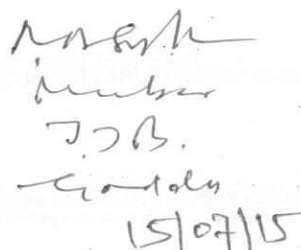 Member
J.J.B.
Godda
15/07/15